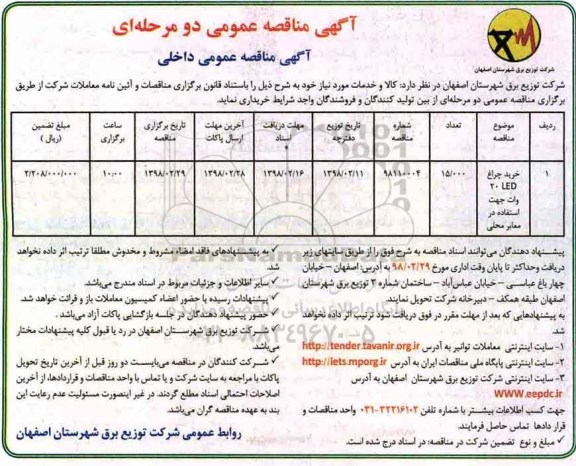 آگهی مناقصه عمومی دو مرحله‌ای
آگهی مناقصه عمومی داخلی
شرکت توزیع برق شهرستان اصفهان
شرکت توزیع برق شهرستان اصفهان در نظر دارد: کالا و خدمات مورد نیاز خود به شرح ذیل را باستناد قانون برگزاری مناقصات و آئین نامه معاملات شرکت از طریق
برگزاری مناقصه عمومی دو مرحله‌ای از بین تولید کنندگان و فروشندگان واجد شرایط خریداری نماید.
ردیف | موضوع مناقصه | تعداد | شماره مناقصه | تاریخ توزیع دفترچه | مهلت دریافت اسناد * | آخرین مهلت ارسال پاکات | تاریخ برگزاری مناقصه | ساعت برگزاری | مبلغ تضمین (ریال)
۱ | خرید چراغ LED ۲۰ وات جهت استفاده در معابر محلی | ۱۵/۰۰۰ | ۹۸۱۱۰۰۰۴ | ۱۳۹۸/۰۲/۱۱ | ۱۳۹۸/۰۲/۱۶ | ۱۳۹۸/۰۲/۲۸ | ۱۳۹۸/۰۲/۲۹ | ۱۰:۰۰ | ۲/۲۰۸/۰۰۰/۰۰۰
پیشنهاد دهندگان می‌توانند اسناد مناقصه به شرح فوق را از طریق سایتهای زیر
دریافت وحداکثر تا پایان وقت اداری مورخ ۹۸/۰۲/۲۹ به آدرس: اصفهان – خیابان
چهارباغ عباسی – خیابان عباس‌آباد – ساختمان شماره ۲ توزیع برق شهرستان
اصفهان طبقه همکف – دبیرخانه شرکت تحویل نمایند.
به پیشنهادهایی که بعد از مهلت مقرر در فوق دریافت شود ترتیب اثر داده نخواهد
شد.
۱- سایت اینترنتی معاملات توانیر به آدرس http://tender.tavanir.org.ir
۲- سایت اینترنتی پایگاه ملی مناقصات ایران به آدرس http://iets.mporg.ir
۳- سایت اینترنتی شرکت توزیع برق شهرستان اصفهان به آدرس
WWW.eepdc.ir
جهت کسب اطلاعات بیشتر با شماره تلفن ۳۲۲۱۶۱۰۲-۰۳۱ واحد مناقصات و
قرار دادها تماس حاصل فرمایند.
✓ مبلغ و نوع تضمین شرکت در مناقصه: در اسناد درج شده است.
✓ به پیشنهادهای فاقد امضاء، مشروط و مخدوش مطلقا ترتیب اثر داده نخواهد
شد.
✓ سایر اطلاعات و جزئیات مربوط در اسناد مندرج می‌باشد.
✓ پیشنهادات رسیده با حضور اعضاء کمیسیون معاملات باز و قرائت خواهد شد.
✓ حضور پیشنهاد دهندگان در جلسه بازگشایی پاکات آزاد می‌باشد.
✓ شرکت توزیع برق شهرستان اصفهان در رد یا قبول کلیه پیشنهادات مختار
می‌باشد.
✓ شرکت کنندگان در مناقصه می‌بایست دو روز قبل از آخرین تاریخ تحویل
پاکات با مراجعه به سایت شرکت و یا تماس با واحد مناقصات و قراردادها، از آخرین
اصلاحات احتمالی اسناد مطلع گردند. در غیر اینصورت مسئولیت عدم رعایت این
بند به عهده مناقصه گران می‌باشد.
روابط عمومی شرکت توزیع برق شهرستان اصفهان